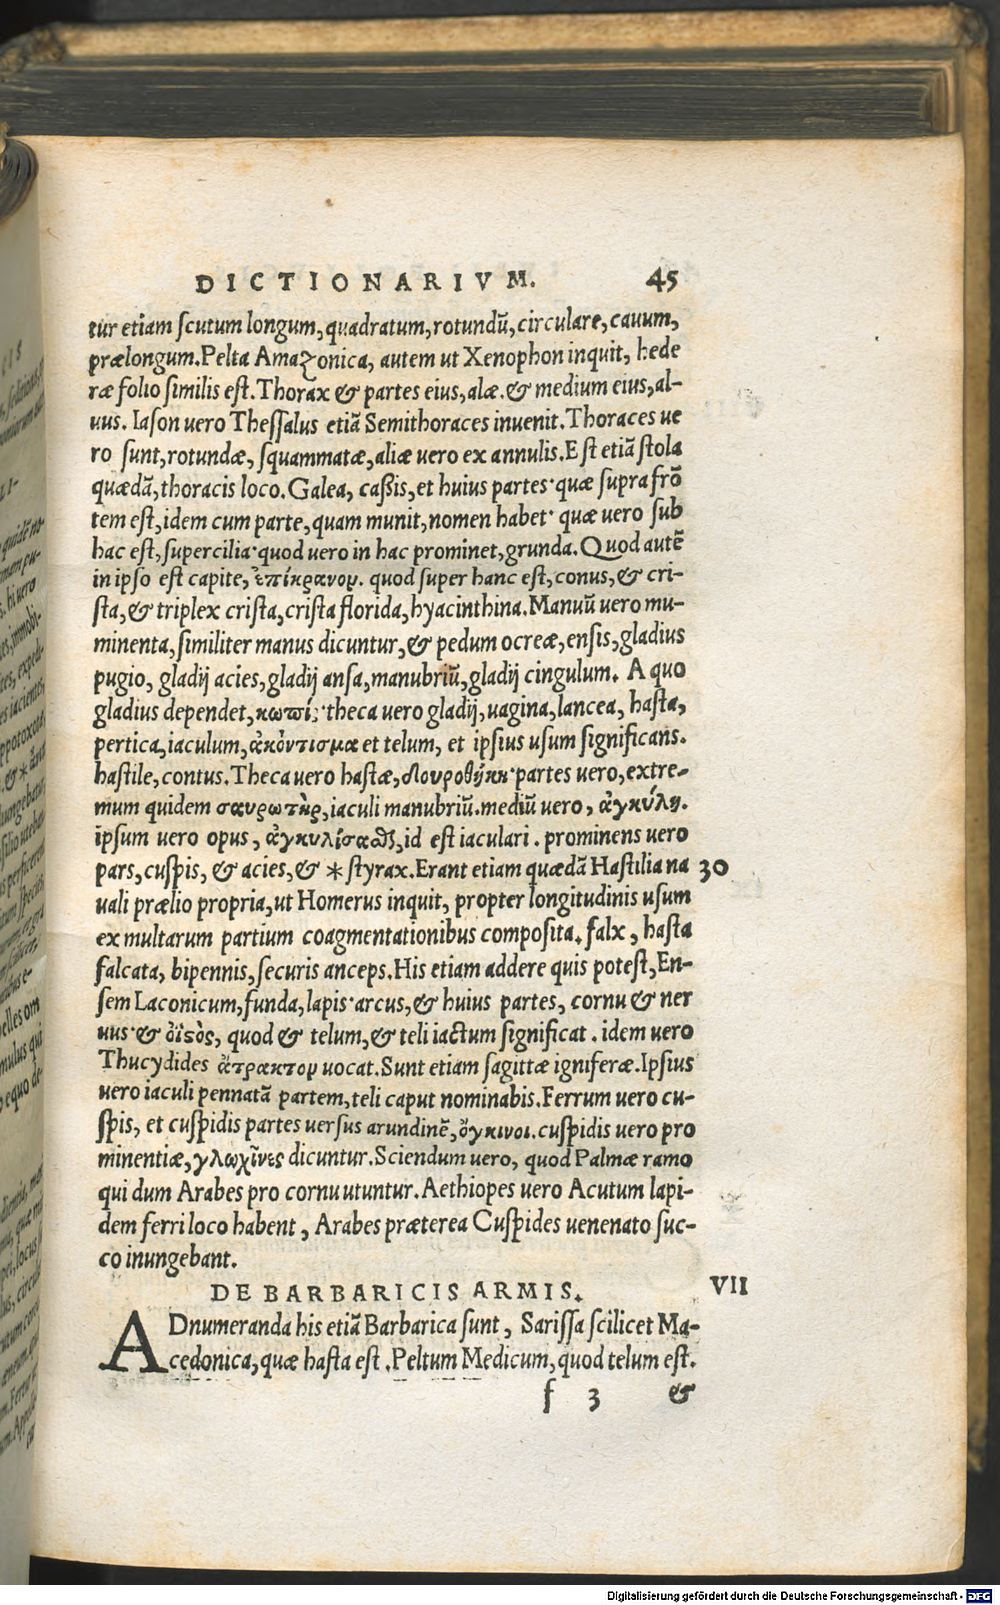 DICTIONARIVM. 45
tur etiam ſcutum longum, quadratum, rotundũ, circulare, cauum,
prælongum. Pelta Amazonica, autem ut Xenophon inquit, hede
ræ folio ſimilis eſt. Thorax & partes eius, alæ. & medium eius, al-
uus. Iaſon uero Theſſalus etiã Semithoraces inuenit. Thoraces ue
ro ſunt, rotundæ, ſquammatæ, aliæ uero ex annulis. Eſt etiã ſtola
quædã, thoracis loco. Galea, caſsis, et huius partes· quæ ſupra frõ
tem eſt, idem cum parte, quam munit, nomen habet· quæ uero ſub
hac eſt, ſupercilia· quod uero in hac prominet, grunda. Quod autẽ
in ipſo eſt capite, ἐπίκρανον. quod ſuper hanc eſt, conus, & cri-
ſta, & triplex criſta, criſta florida, hyacinthina. Manuũ uero mu-
nimenta, ſimiliter manus dicuntur, & pedum ocreæ, enſis, gladius
pugio, gladij acies, gladij anſa, manubriũ, gladij cingulum. A quo
gladius dependet, κωπί; theca uero gladij, uagina, lancea, haſta,
pertica, iaculum, ἀκόντισμα et telum, et ipſius uſum ſignificans.
haſtile, contus. Theca uero haſtæ, δουροθήκη· partes uero, extre-
mum quidem σαυρωτὴρ, iaculi manubriũ. mediũ uero, ἀγκύλη.
ipſum uero opus, ἀγκυλίσαϑ, id eſt iaculari. prominens uero
pars, cuſpis, & acies, & * ſtyrax. Erant etiam quædã Haſtilia na 30
uali prælio propria, ut Homerus inquit, propter longitudinis uſum
ex multarum partium coagmentationibus compoſita. falx, haſta
falcata, bipennis, ſecuris anceps. His etiam addere quis poteſt, En-
ſem Laconicum, funda, lapis· arcus, & huius partes, cornu & ner
uus· & ὀϊστὸς, quod & telum, & teli iactum ſignificat. idem uero
Thucydides ἄτρακτον uocat. Sunt etiam ſagittæ igniferæ. Ipſius
uero iaculi pennatã partem, teli caput nominabis. Ferrum uero cu-
ſpis, et cuſpidis partes uerſus arundinẽ, ὄγκινοι. cuſpidis uero pro
minentiæ, γλωχῖνες dicuntur. Sciendum uero, quod Palmæ ramo
qui dum Arabes pro cornu utuntur. Aethiopes uero Acutum lapi-
dem ferri loco habent, Arabes præterea Cuſpides uenenato ſuc-
co inungebant.
DE BARBARICIS ARMIS. VII
ADnumeranda his etiã Barbarica ſunt, Sariſſa ſcilicet Ma-
cedonica, quæ haſta eſt. Peltum Medicum, quod telum eſt.
f 3 &
Digitalisierung gefördert durch die Deutsche Forschungsgemeinschaft - DFG